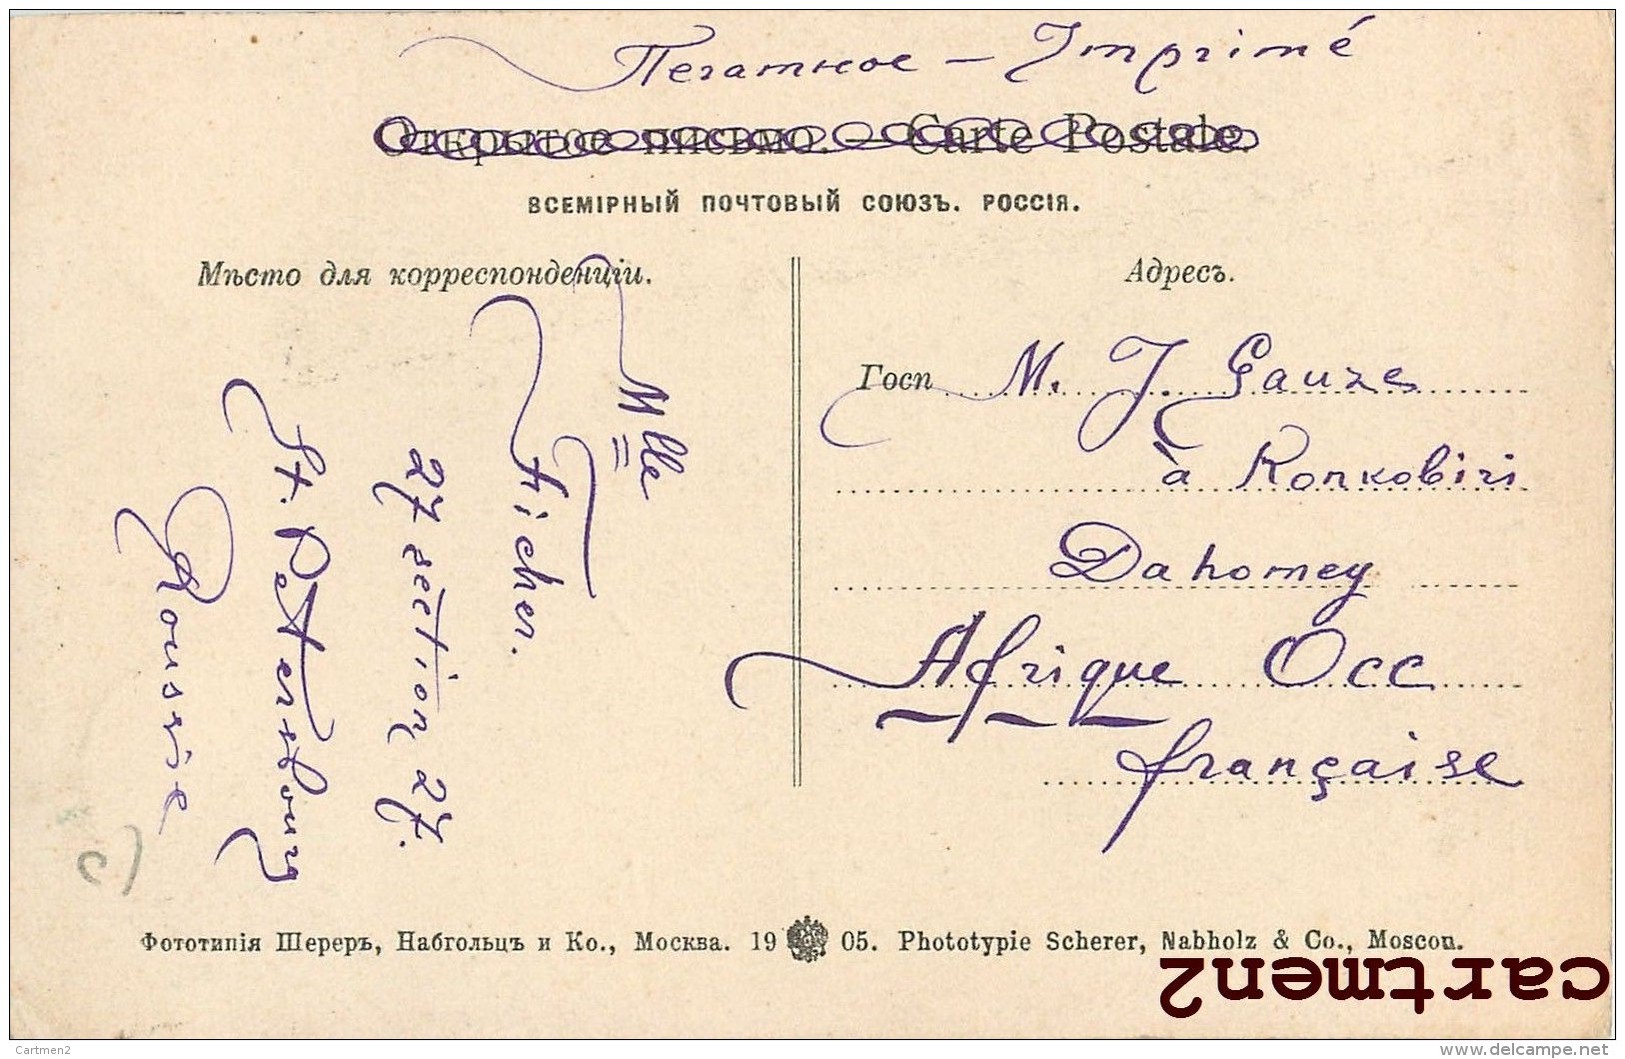 Печатное — Imprimé
Открытое письмо. — Carte Postale.
ВСЕМІРНЫЙ ПОЧТОВЫЙ СОЮЗЪ. РОССІЯ.
Мѣсто для корреспонденціи.
Mlle
Ficher.
27 section 27.
St. Petersbourg
Roussie
Адресъ.
Госп M. J. Gauze
à Konkobiri
Dahomey
Afrique Occ
française
Фототипія Шереръ, Набгольцъ и Ко., Москва. 19 05. Phototypie Scherer, Nabholz & Co., Moscou.
cartmen2
Cartmen2
www.delcampe.net